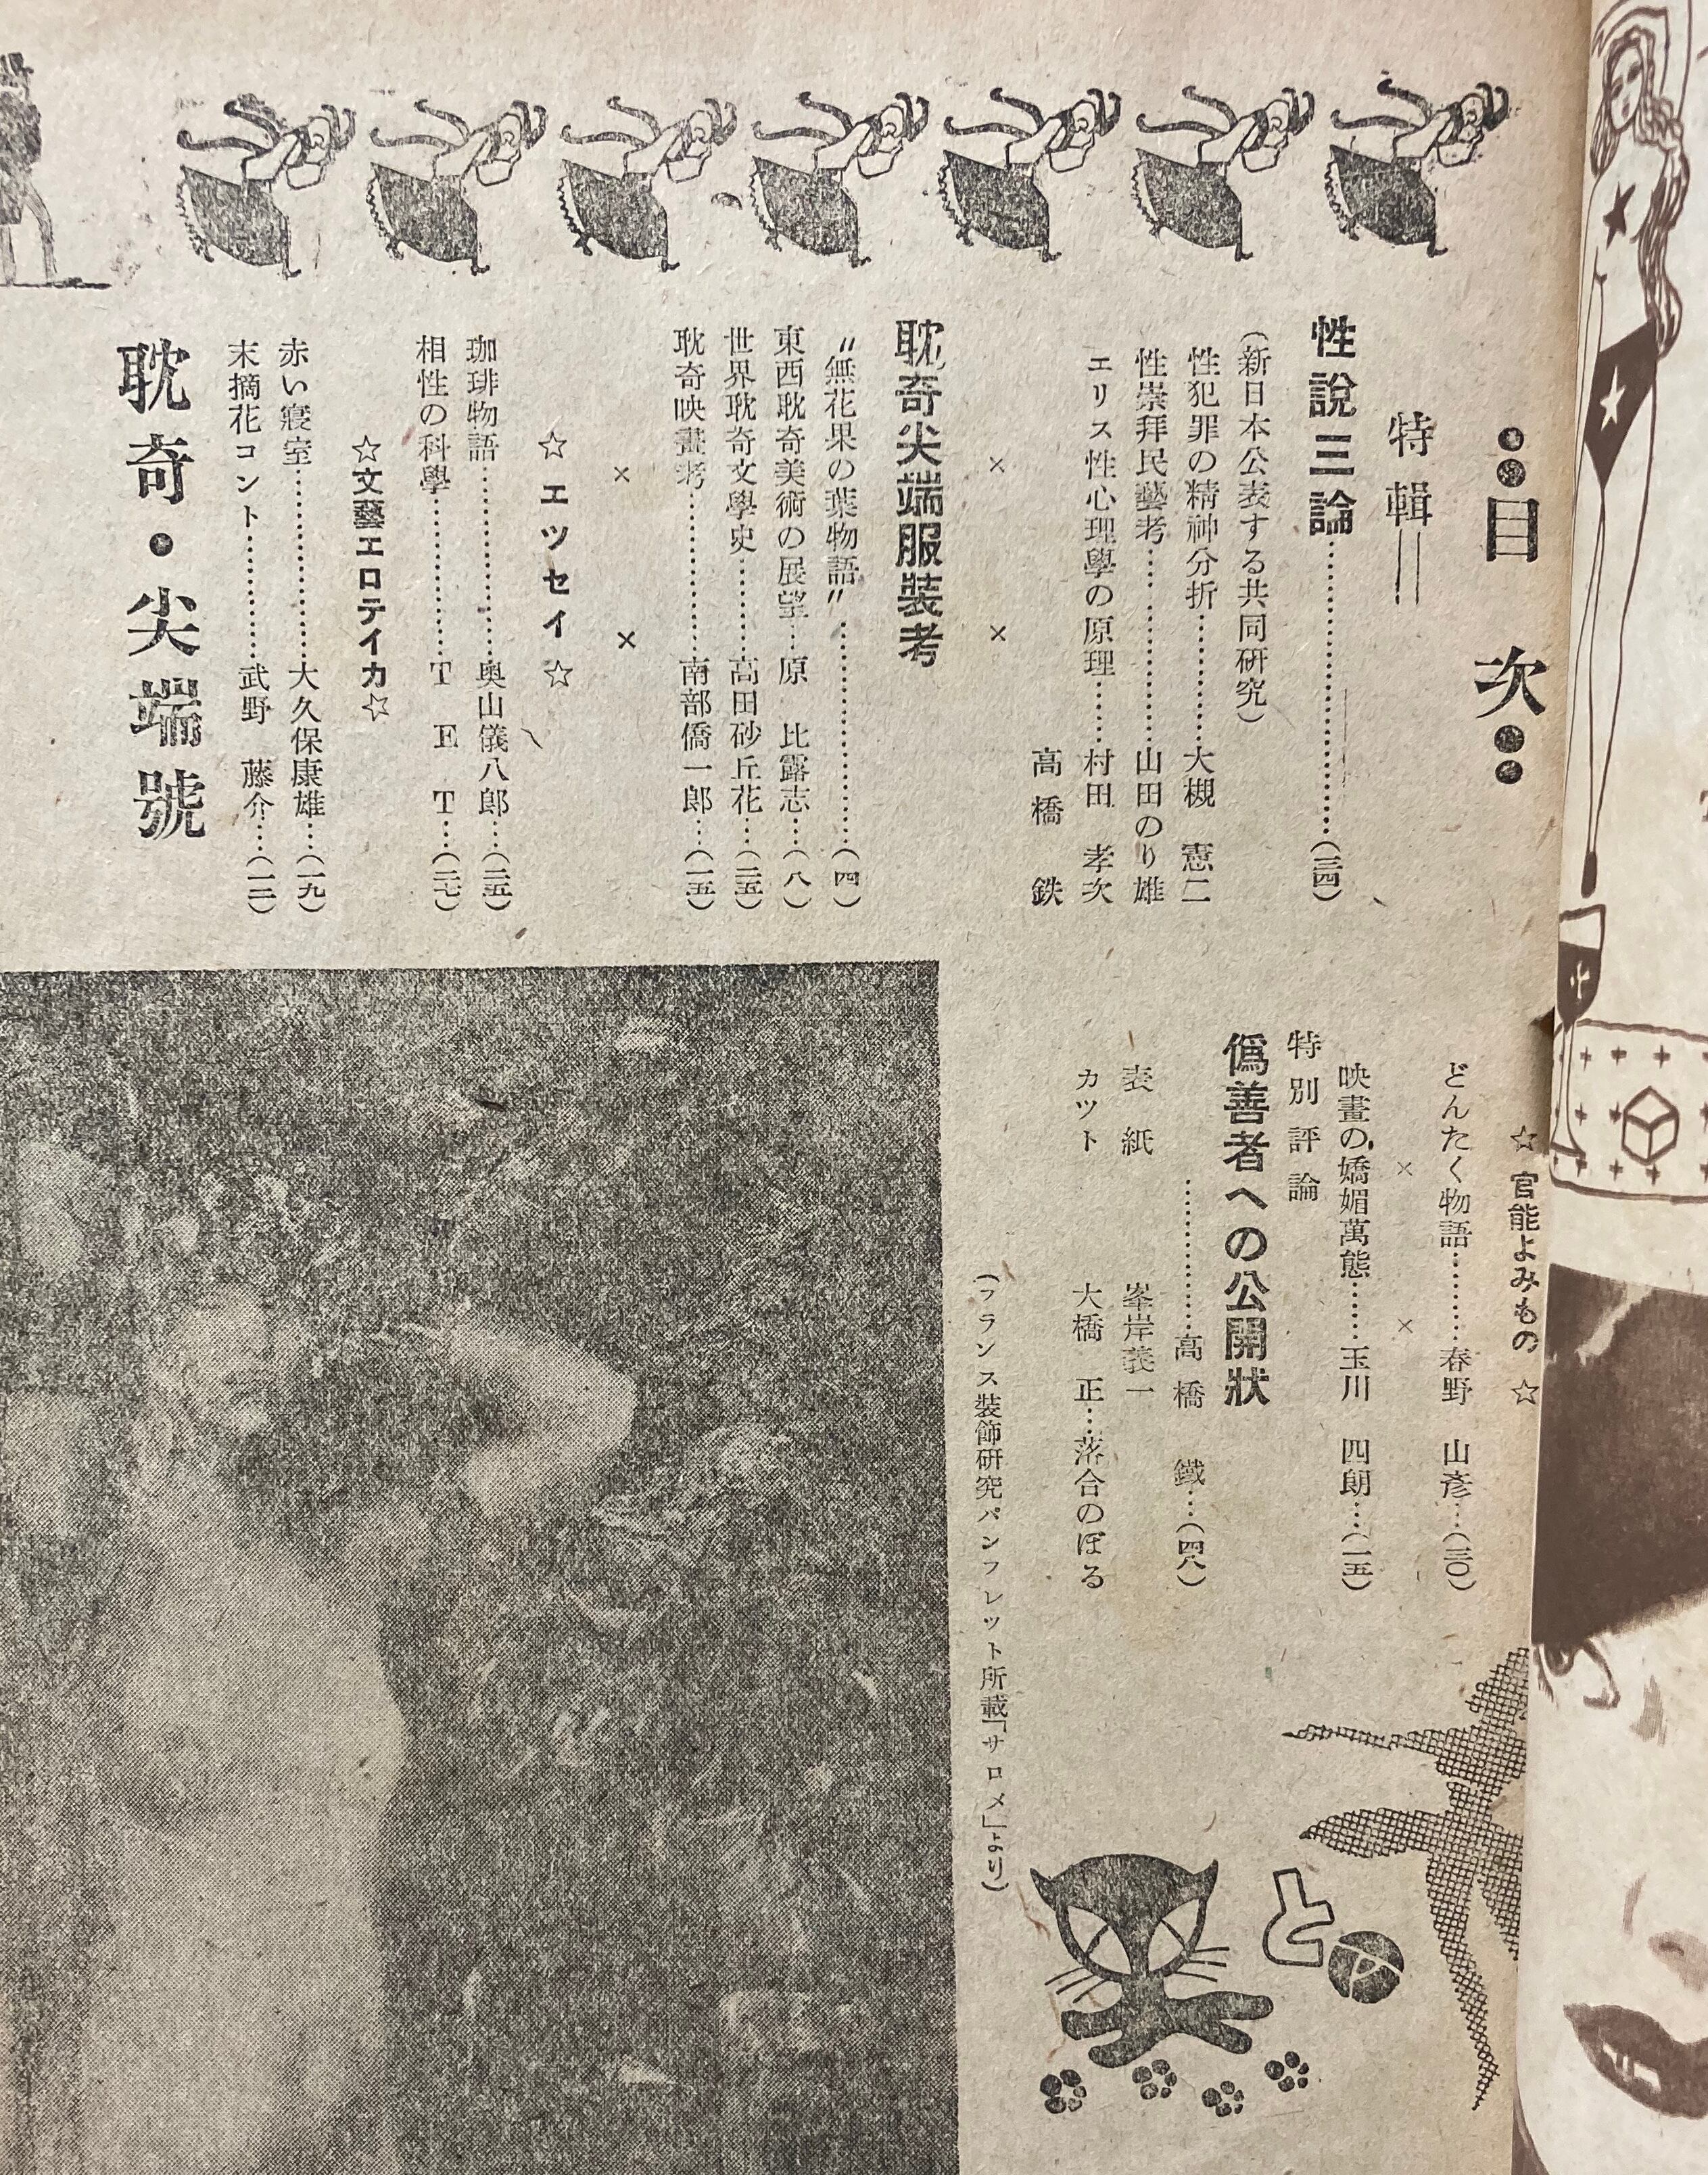 目次
特輯
性說三論……(三四)
(新日本公表する共同研究)
性犯罪の精神分折……大槻 憲二
性崇拜民藝考……山田のり雄
エリス性心理學の原理……村田 孝次
高橋 鉄
× ×
耽奇尖端服裝考
〃無花果の葉物語〃……(四)
東西耽奇美術の展望……原 比露志……(八)
世界耽奇文學史……高田砂丘花……(二五)
耽奇映畫考……南部僑一郎……(一五)
× ×
☆エツセイ☆
珈琲物語……奥山儀八郎……(二五)
相性の科學……T E T……(二七)
☆文藝エロテイカ☆
赤い寢室……大久保康雄……(一九)
末摘花コント……武野 藤介……(一二)
耽奇・尖端號
☆官能よみもの☆
どんたく物語……春野 山彥……(三〇)
× ×
映畫の嬌媚萬態……玉川 四朗……(一五)
特別評論
僞善者への公開狀
……高橋 鐵……(四八)
表紙 峯岸義一
カツト 大橋 正…落合のぼる
(フランス裝飾研究パンフレット所載「サロメ」より)
と